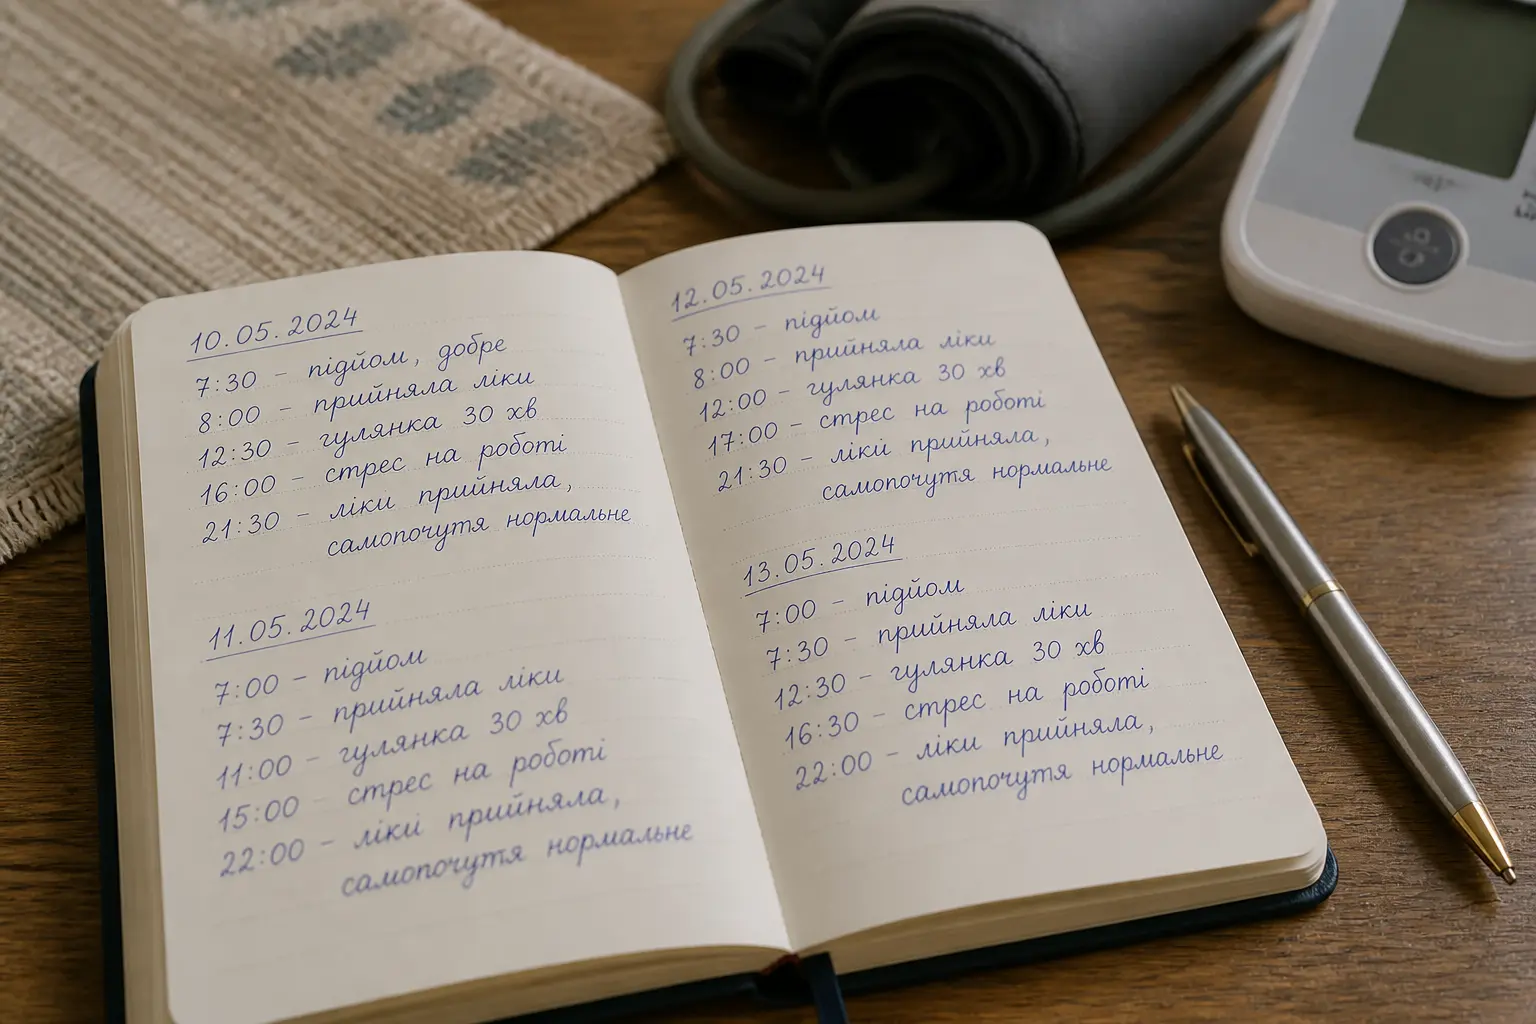 10.05.2024
7:30 – підйом, добре
8:00 – прийняла ліки
12:30 – гулянка 30 хв
16:00 – стрес на роботі
21:30 – ліки прийняла,
самопочуття нормальне
11.05.2024
7:00 – підйом
7:30 – прийняла ліки
11:00 – гулянка 30 хв
15:00 – стрес на роботі
22:00 – ліки прийняла,
самопочуття нормальне
12.05.2024
7:30 – підйом
8:00 – прийняла ліки
12:00 – гулянка 30 хв
17:00 – стрес на роботі
21:30 – ліки прийняла,
самопочуття нормальне
13.05.2024
7:00 – підйом
7:30 – прийняла ліки
12:30 – гулянка 30 хв
16:30 – стрес на роботі
22:00 – ліки прийняла,
самопочуття нормальне